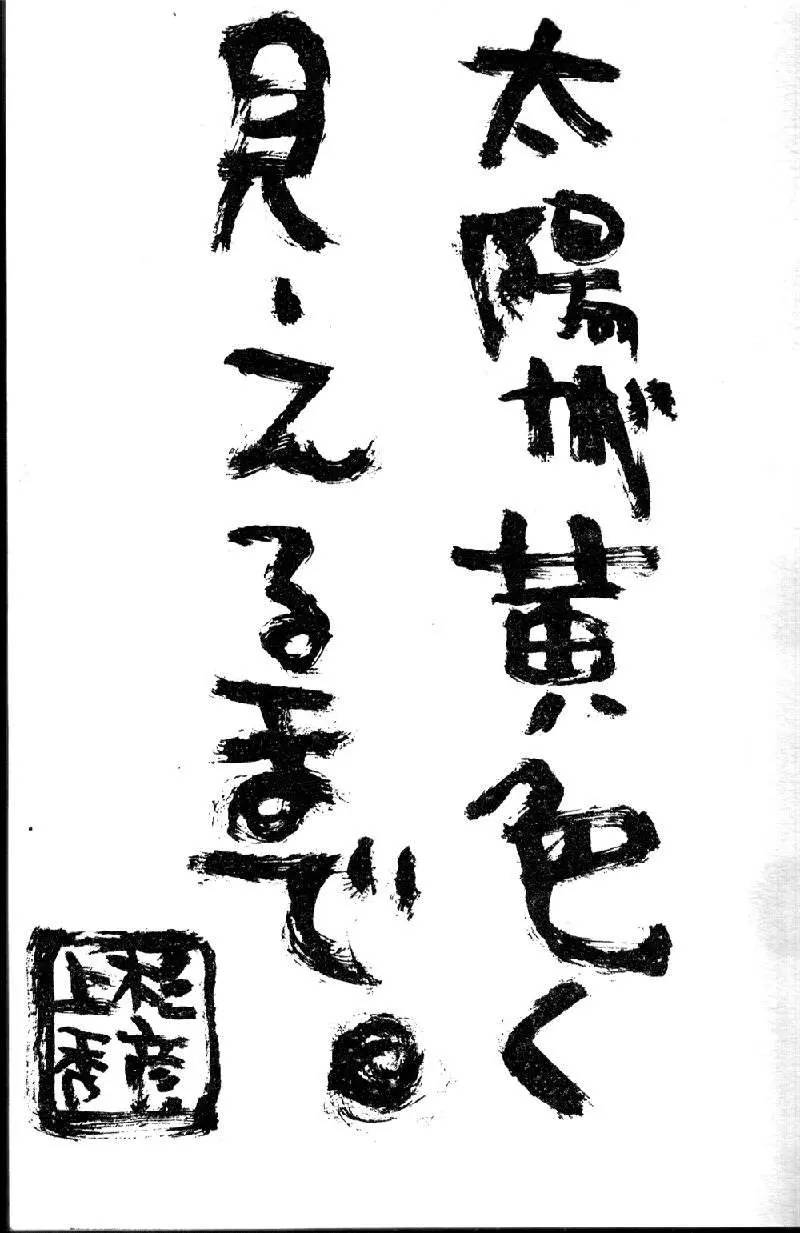 太陽が黄色く
見えるまで。